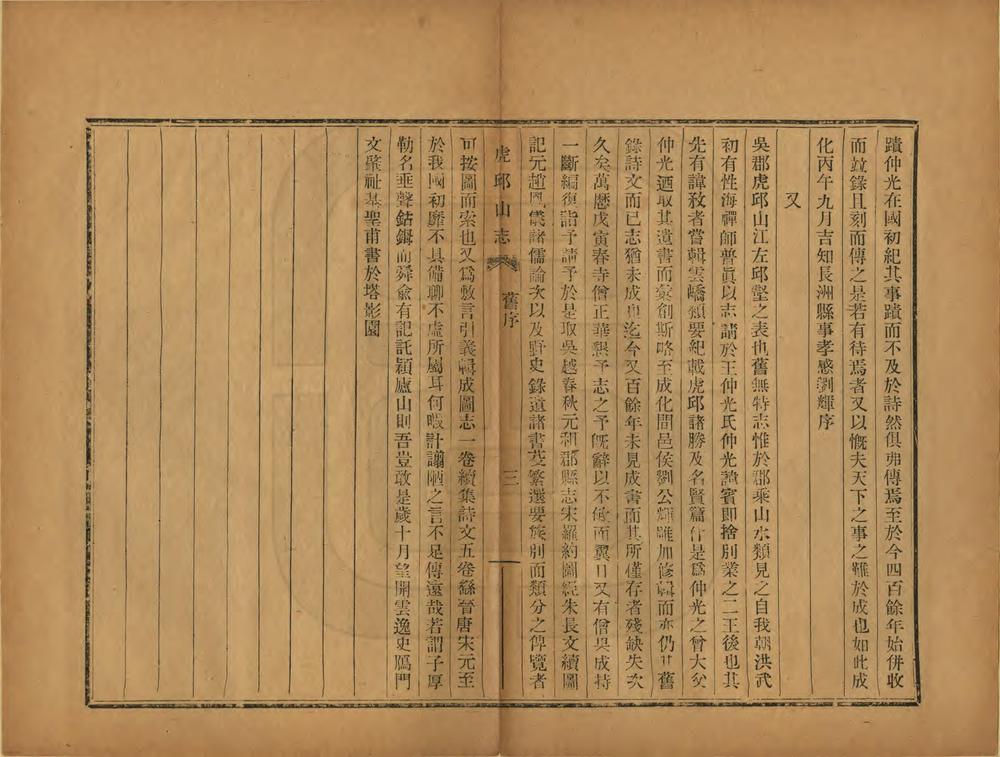 蹟仲光在國初紀其事蹟而不及於詩然俱弗傳焉至於今四百餘年始併收
而竝錄且刻而傳之是若有待焉者又以慨夫天下之事之難於成也如此成
化丙午九月吉知長洲縣事孝感劉輝序
又
吳郡虎邱山江左邱壑之表也舊無特志惟於郡乘山水類見之自我朝洪武
初有性海禪師普眞以志請於王仲光氏仲光諡賓即捨別業之二王後也其
先有諱敎者嘗輯雲嶠類要紀載虎邱諸勝及名賢篇什是爲仲光之曾大父
仲光迺取其遺書而彙創斯略至成化間邑侯劉公輝雖加修輯而亦仍其舊
錄詩文而已志猶未成也迄今又百餘年未見成書而其所僅存者殘缺失次
久矣萬曆戊寅春寺僧正華懇予志之予旣辭以不敏而翼日又有僧具成持
一斷編復詣予請予於是取吳越春秋元和郡縣志宋羅約圖經朱長文續圖
記元趙鳳儀諸儒論次以及野史錄道諸書芟繁選要族別而類分之俾覽者
虎邱山志 舊序 三
可按圖而索也又爲敷言引義輯成圖志一卷續集詩文五卷繇晉唐宋元至
於我國初靡不具備聊不虛所屬耳何暇計譾陋之言不足傳遠哉若謂子厚
勒名垂聲鈷鉧而舜兪有記託穎廬山則吾豈敢是歲十月望開雲逸史鴈門
文肇祉基聖甫書於塔影園